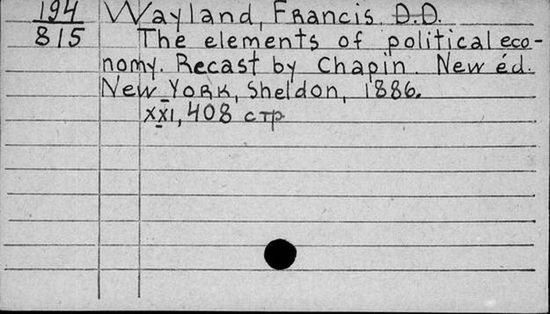 194 Wayland, Francis. D.D.
815 The elements of political eco-
nomy. Recast by Chapin. New éd.
New York, Sheldon, 1886.
XXI, 408 стр